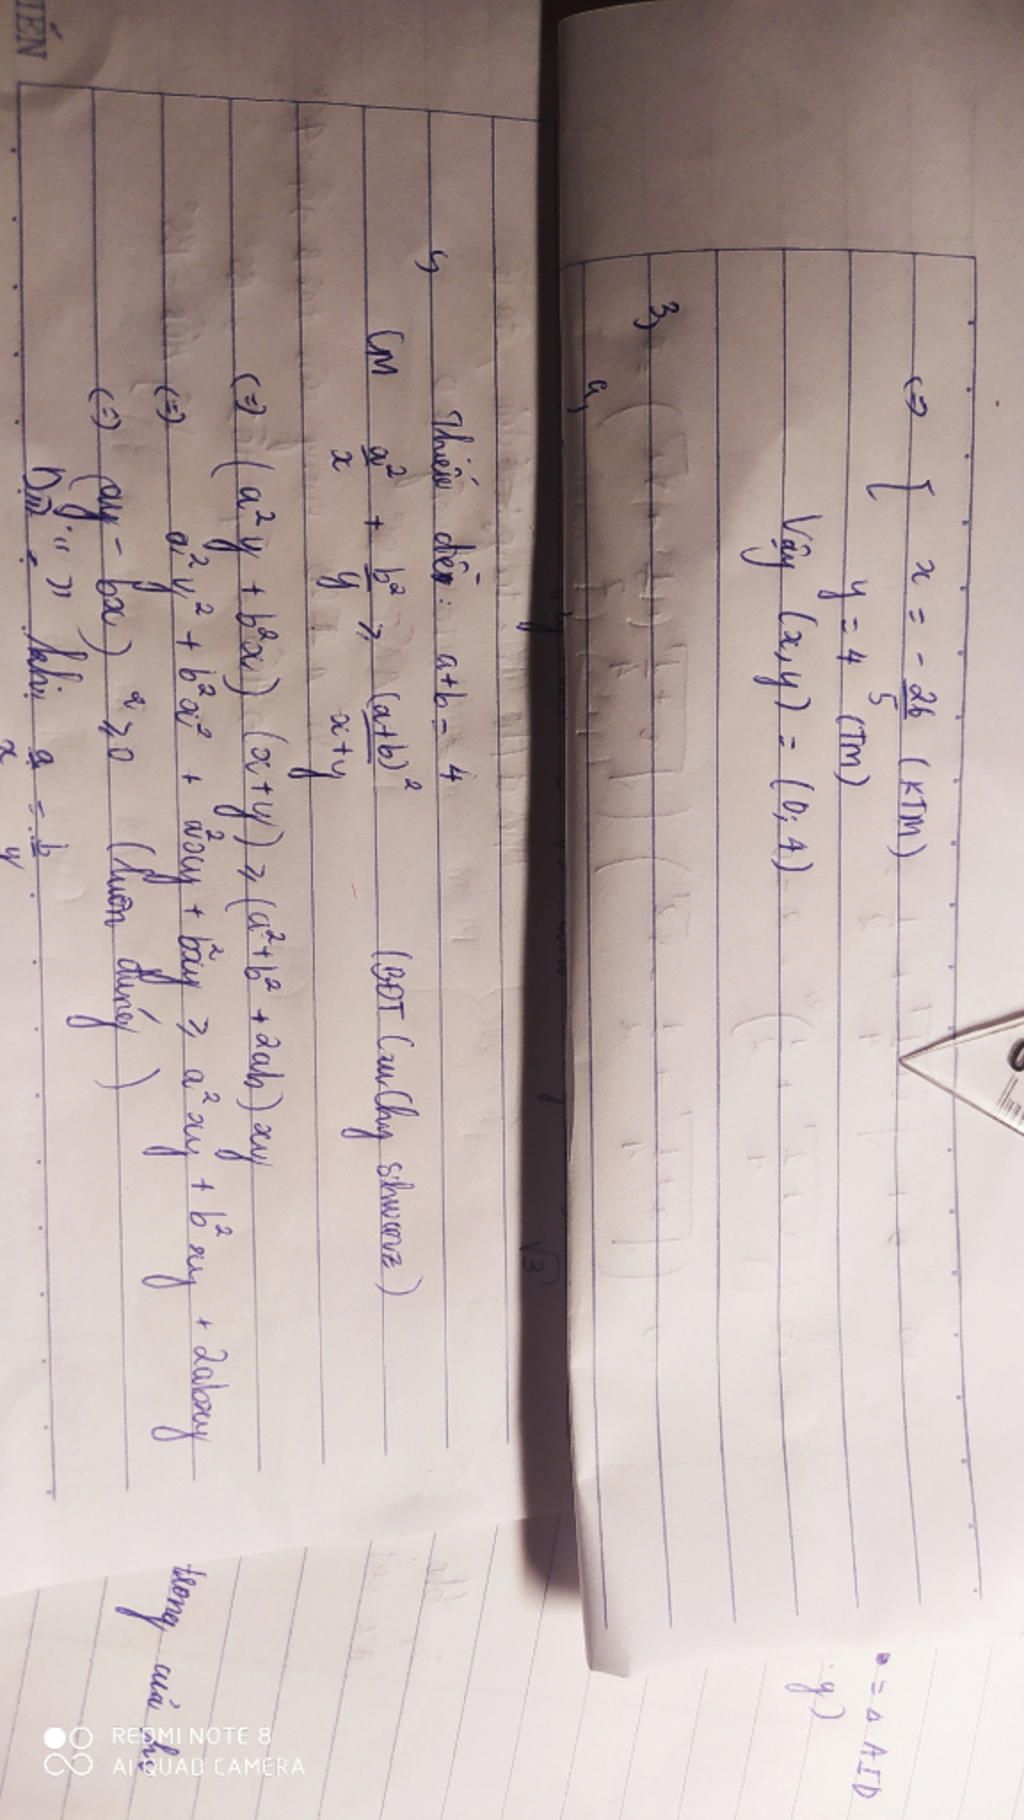 (=) [ x = - 26/5 (KTM)
y = 4 (TM)
Vậy (x,y) = (0; 4)
3,
a,
4, Thiếu đề: a+b = 4
CM a²/x + b²/y ≥ (a+b)²/x+y (BĐT Cauchy
(=) (a²y + b²x) (x+y) ≥ (a²+b² + 2ab) xy
(=) a²y² + b²x² + a²xy + b²xy ≥ a²xy + b²xy + 2abxy
(=) (ay - bx)² ≥ 0 (luôn đúng)
Dấu "=" khi a/x = b/y
TIẾN
√3
= △ AID
y)
trong
REDMI NOTE 8
AI QUAD CAMERA